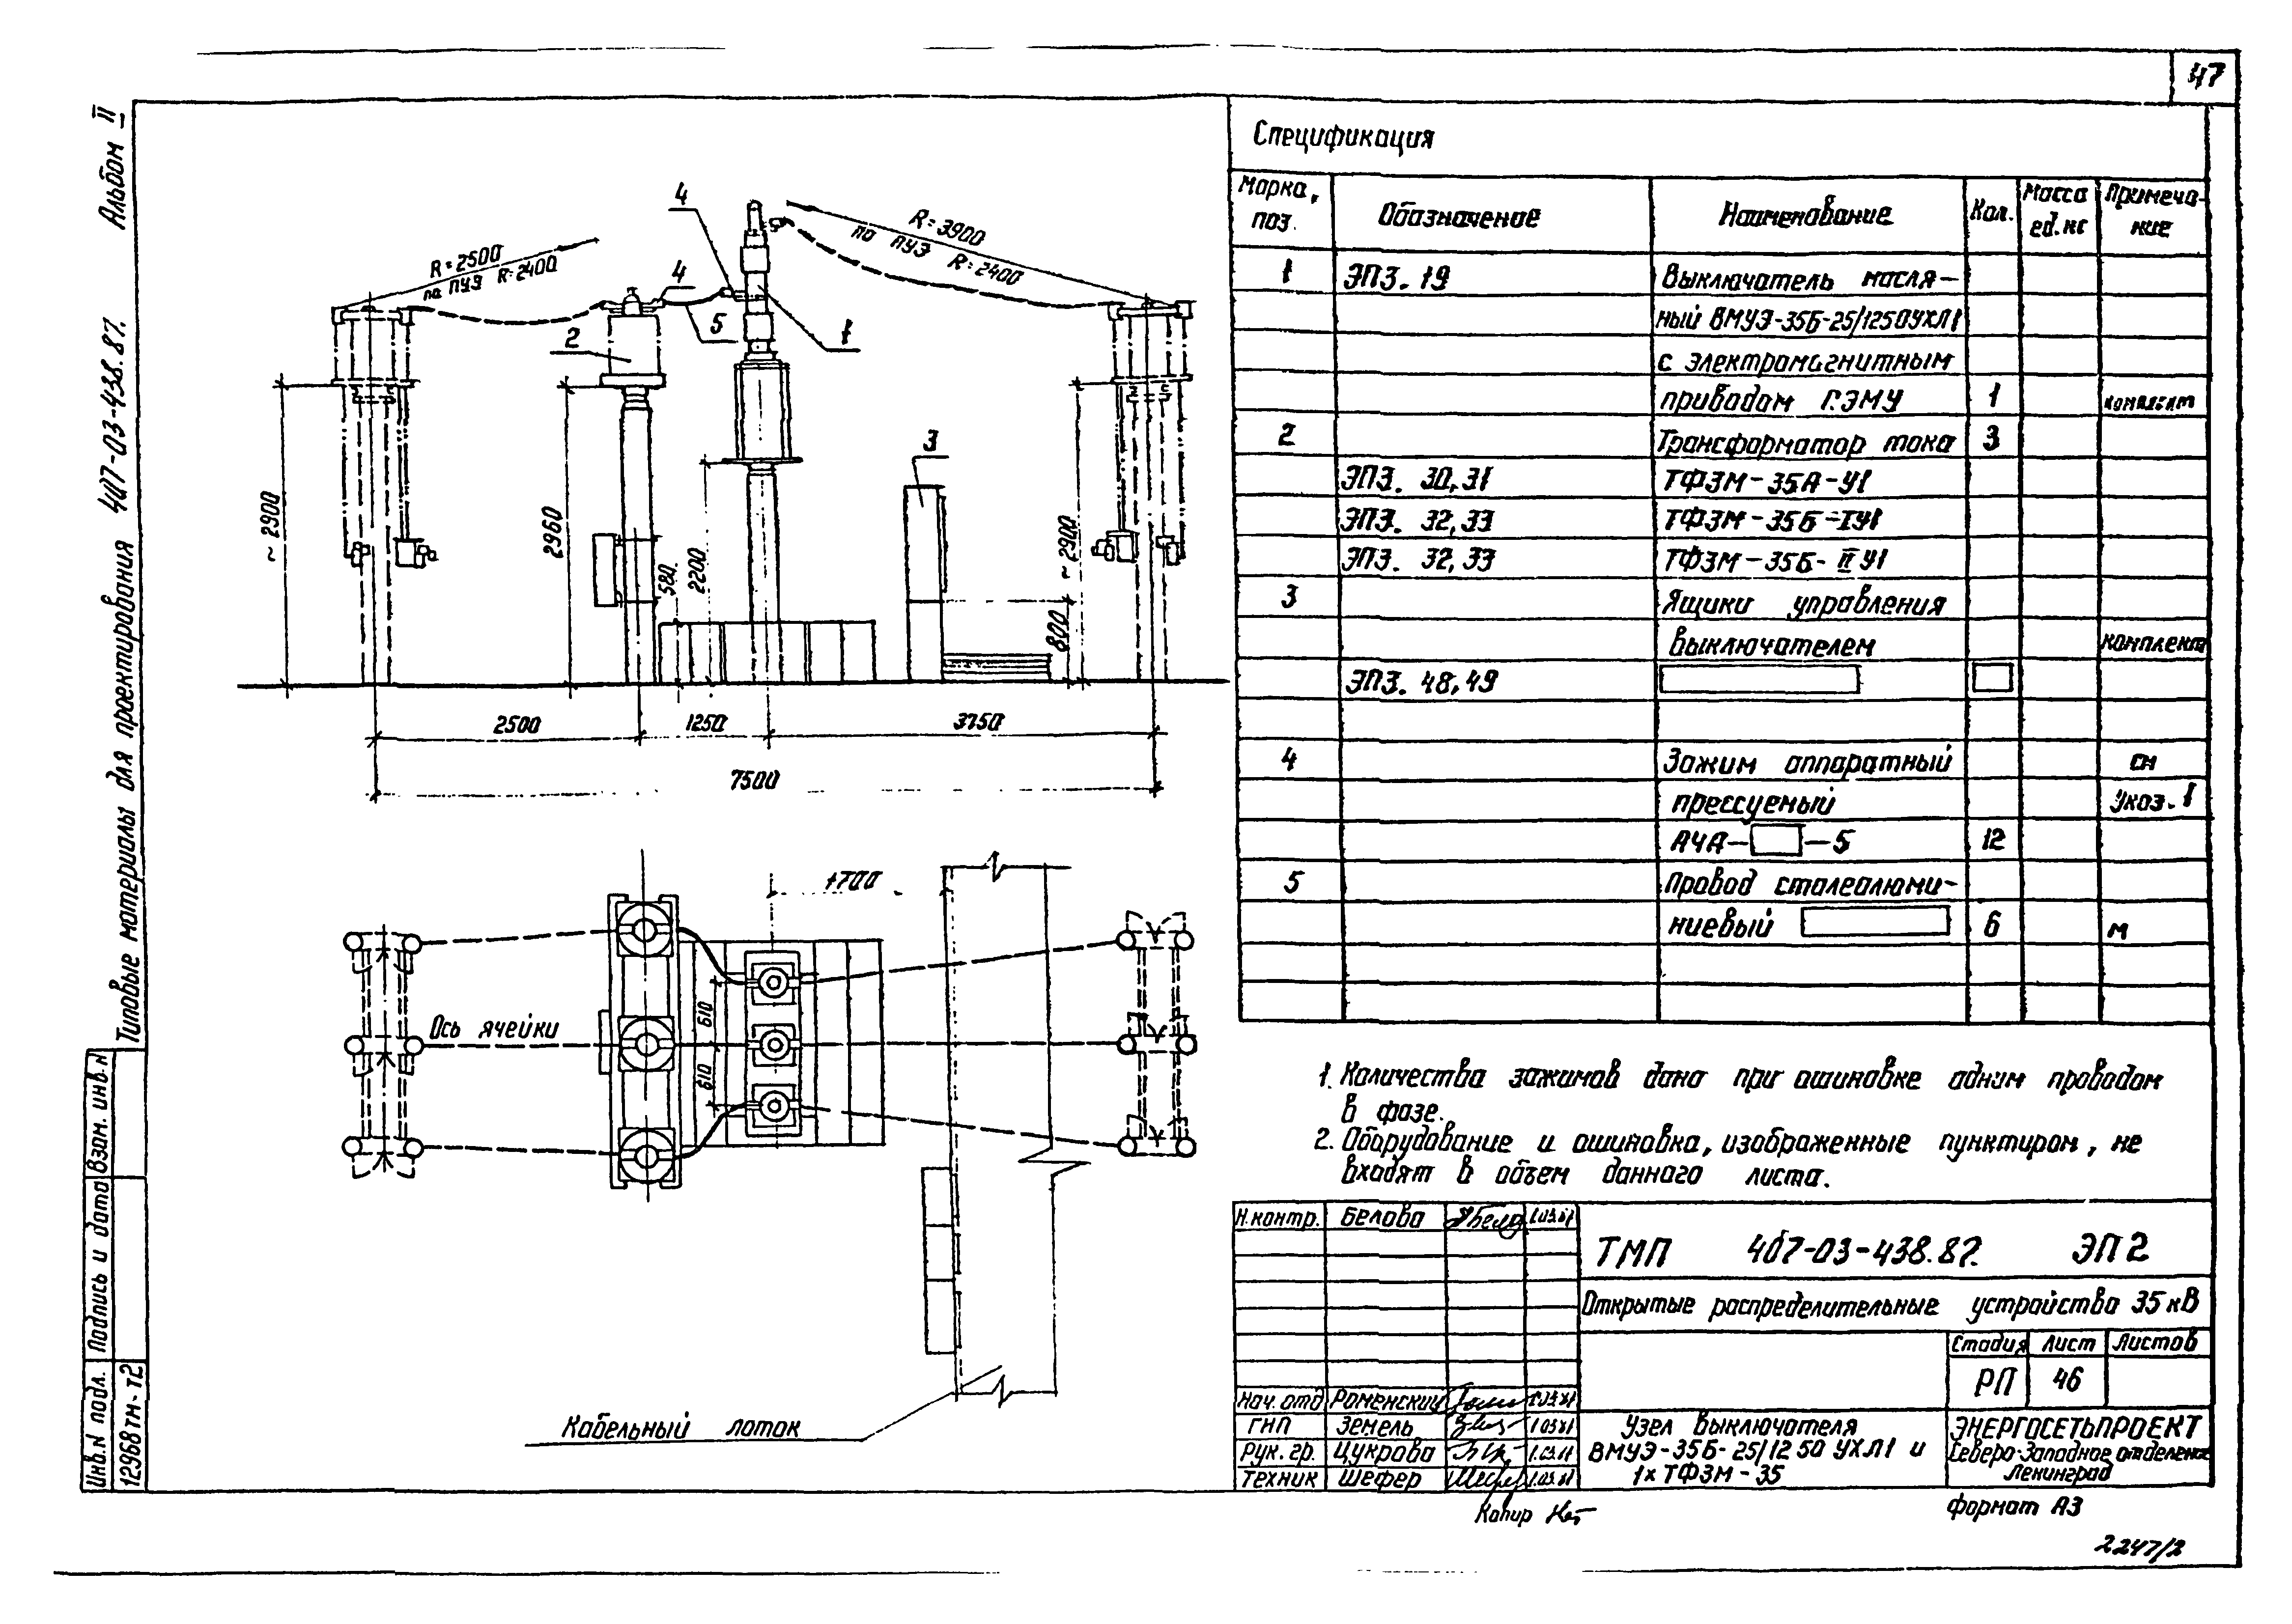 47
Альбом II
407-03-438.87.
Типовые материалы для проектирования
Взам. инв. N
Подпись и дата
Инв. N подл.
12968тм-т2
4
R=3900
по ПУЭ R=2400
R=2500
по ПУЭ R=2400
4
5
1
2
3
~2900
2960
580
2200
~2900
800
2500
1250
3750
7500
1700
610
Ось ячейки
610
Кабельный лоток
Спецификация
Марка, поз. Обозначение Наименование Кол. Масса ед. кг Примечание
1 ЭПЗ. 19 Выключатель масля-
ный ВМУЭ-35Б-25/1250УХЛ1
с электромагнитным
приводом ПЭМУ 1 комплект
2 Трансформатор тока 3
ЭПЗ. 30,31 ТФЗМ-35А-У1
ЭПЗ. 32,33 ТФЗМ-35Б-IУ1
ЭПЗ. 32,33 ТФЗМ-35Б-IIУ1
3 Ящики управления
выключателем комплект
ЭПЗ. 48,49
4 Зажим аппаратный см
прессуемый указ. 1
А4А- -5 12
5 Провод сталеалюми-
ниевый 6 м
1. Количества зажимов дано при ошиновке одним проводом
в фазе.
2. Оборудование и ошиновка, изображенные пунктиром, не
входят в объем данного листа.
Н. контр. Белова
ТМП 407-03-438.87. ЭП2
Открытые распределительные устройства 35кВ
Стадия Лист Листов
РП 46
Нач. отд Роменский
ГИП Земель
Рук. гр. Цукрова
Техник Шефер
Узел выключателя
ВМУЭ-35Б-25/1250 УХЛ1 и
1хТФЗМ-35
ЭНЕРГОСЕТЬПРОЕКТ
Северо-Западное отделение
Ленинград
Копир
формат А3
2247/2